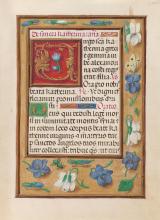 De sancta katherina añ
Virgo sca
katherina gre
cie gemma ur
be alexandri
na costi regis
erat filia. Ora
pro nobis beata katherina
Ut digni
efficiamur promissionibus xpi.
Deus qui dedisti legem moy
si in summitate montis synai et
in eodem loco corpus beate kathe
rine virginis et martiris tue per
sanctos angelos tuos mirabi
liter collocasti: tribue qs ut